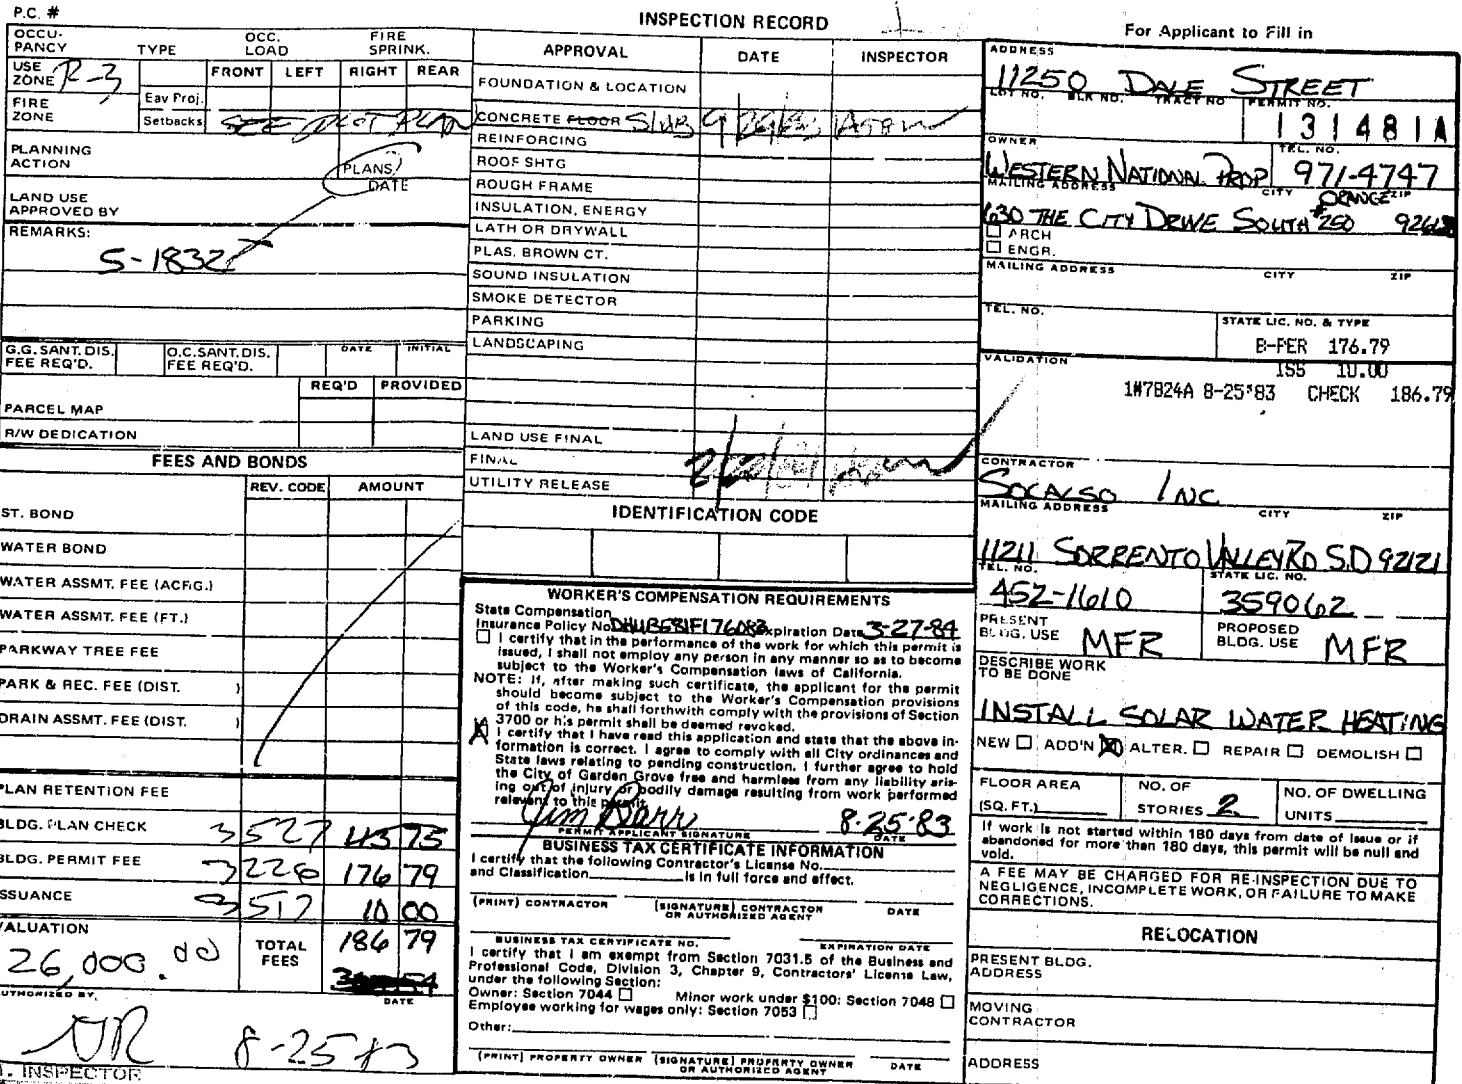 P.C. #
OCCU-
PANCY TYPE OCC.
LOAD FIRE
SPRINK.
USE
ZONE R-3 FRONT LEFT RIGHT REAR
Eav Proj.
FIRE
ZONE Setbacks SEE PLOT PLAN
PLANNING
ACTION PLANS
DATE
LAND USE
APPROVED BY
REMARKS:
S-1832
G.G. SANT. DIS.
FEE REQ'D. O.C. SANT. DIS.
FEE REQ'D. DATE INITIAL
REQ'D PROVIDED
PARCEL MAP
R/W DEDICATION
FEES AND BONDS
REV. CODE AMOUNT
ST. BOND
WATER BOND
WATER ASSMT. FEE (ACRG.)
WATER ASSMT. FEE (FT.)
PARKWAY TREE FEE
PARK & REC. FEE (DIST. )
DRAIN ASSMT. FEE (DIST. )
PLAN RETENTION FEE
BLDG. PLAN CHECK 3527 43 75
BLDG. PERMIT FEE 3226 176 79
ISSUANCE 3517 10 00
VALUATION
26,000.00 TOTAL
FEES 186 79
AUTHORIZED BY. DATE
8-25-83
INSPECTOR
INSPECTION RECORD
APPROVAL DATE INSPECTOR
FOUNDATION & LOCATION
CONCRETE FLOOR Slab
REINFORCING
ROOF SHTG
ROUGH FRAME
INSULATION, ENERGY
LATH OR DRYWALL
PLAS. BROWN CT.
SOUND INSULATION
SMOKE DETECTOR
PARKING
LANDSCAPING
LAND USE FINAL
FINAL
UTILITY RELEASE
IDENTIFICATION CODE
WORKER'S COMPENSATION REQUIREMENTS
State Compensation
Insurance Policy No. Expiration Date 3-27-84
I certify that in the performance of the work for which this permit is
issued, I shall not employ any person in any manner so as to become
subject to the Worker's Compensation laws of California.
NOTE: If, after making such certificate, the applicant for the permit
should become subject to the Worker's Compensation provisions
of this code, he shall forthwith comply with the provisions of Section
3700 or his permit shall be deemed revoked.
X I certify that I have read this application and state that the above in-
formation is correct. I agree to comply with all City ordinances and
State laws relating to pending construction. I further agree to hold
the City of Garden Grove free and harmless from any liability aris-
ing out of injury or bodily damage resulting from work performed
relevant to this permit.
Jim Barr 8-25-83
PERMIT APPLICANT SIGNATURE DATE
BUSINESS TAX CERTIFICATE INFORMATION
I certify that the following Contractor's License No.
and Classification is in full force and effect.
(PRINT) CONTRACTOR (SIGNATURE) CONTRACTOR
OR AUTHORIZED AGENT DATE
BUSINESS TAX CERTIFICATE NO. EXPIRATION DATE
I certify that I am exempt from Section 7031.5 of the Business and
Professional Code, Division 3, Chapter 9, Contractors' License Law,
under the following Section:
Owner: Section 7044 Minor work under $100: Section 7048
Employee working for wages only: Section 7053
Other:
(PRINT) PROPERTY OWNER (SIGNATURE) PROPERTY OWNER
OR AUTHORIZED AGENT DATE
For Applicant to Fill in
ADDRESS
11250 DALE STREET
LOT NO. BLK NO. TRACT NO PERMIT NO.
131481A
OWNER TEL. NO.
WESTERN NATIONAL PROP 971-4747
MAILING ADDRESS CITY ORANGE ZIP
630 THE CITY DRIVE SOUTH #250
ARCH
ENGR.
MAILING ADDRESS CITY ZIP
TEL. NO.
STATE LIC. NO. & TYPE
B-PER 176.79
VALIDATION ISS 10.00
1#7824A 8-25'83 CHECK 186.79
CONTRACTOR
SOCALSO INC
MAILING ADDRESS CITY ZIP
11211 SORRENTO VALLEY RD S.D 92121
TEL. NO. STATE LIC. NO.
452-1610 359062
PRESENT
BLDG. USE MFR PROPOSED
BLDG. USE MFR
DESCRIBE WORK
TO BE DONE
INSTALL SOLAR WATER HEATING
NEW ADD'N X ALTER. REPAIR DEMOLISH
FLOOR AREA
(SQ. FT.) NO. OF
STORIES 2 NO. OF DWELLING
UNITS
If work is not started within 180 days from date of issue or if
abandoned for more than 180 days, this permit will be null and
void.
A FEE MAY BE CHARGED FOR RE-INSPECTION DUE TO
NEGLIGENCE, INCOMPLETE WORK, OR FAILURE TO MAKE
CORRECTIONS.
RELOCATION
PRESENT BLDG.
ADDRESS
MOVING
CONTRACTOR
ADDRESS